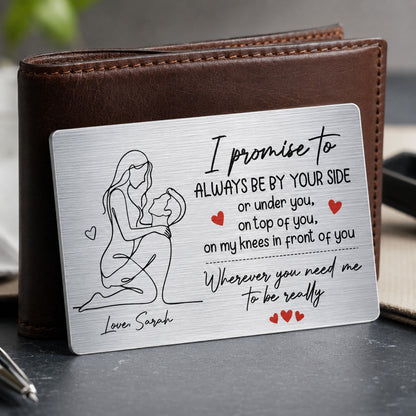 I promise to
ALWAYS BE BY YOUR SIDE
or under you,
on top of you,
on my knees in front of you
Wherever you need me
to be really
Love, Sarah